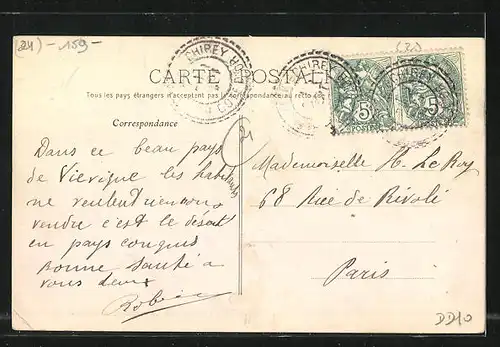 (21) - 159 -
(2.)
CHIREY
CHIREY
CHIREY
CARTE POSTALE
Tous les pays étrangers n'acceptent pas la correspondance au recto
5 5
POSTES
Correspondance
21
Dans ce beau pays
de Viévigne les hab
ne veulent rien
vendre c'est le désert
en pays conquis
Bonne Santé à
vous deux
Mademoiselle H. Le Roy
68 Rue de Rivoli
Paris
DD10